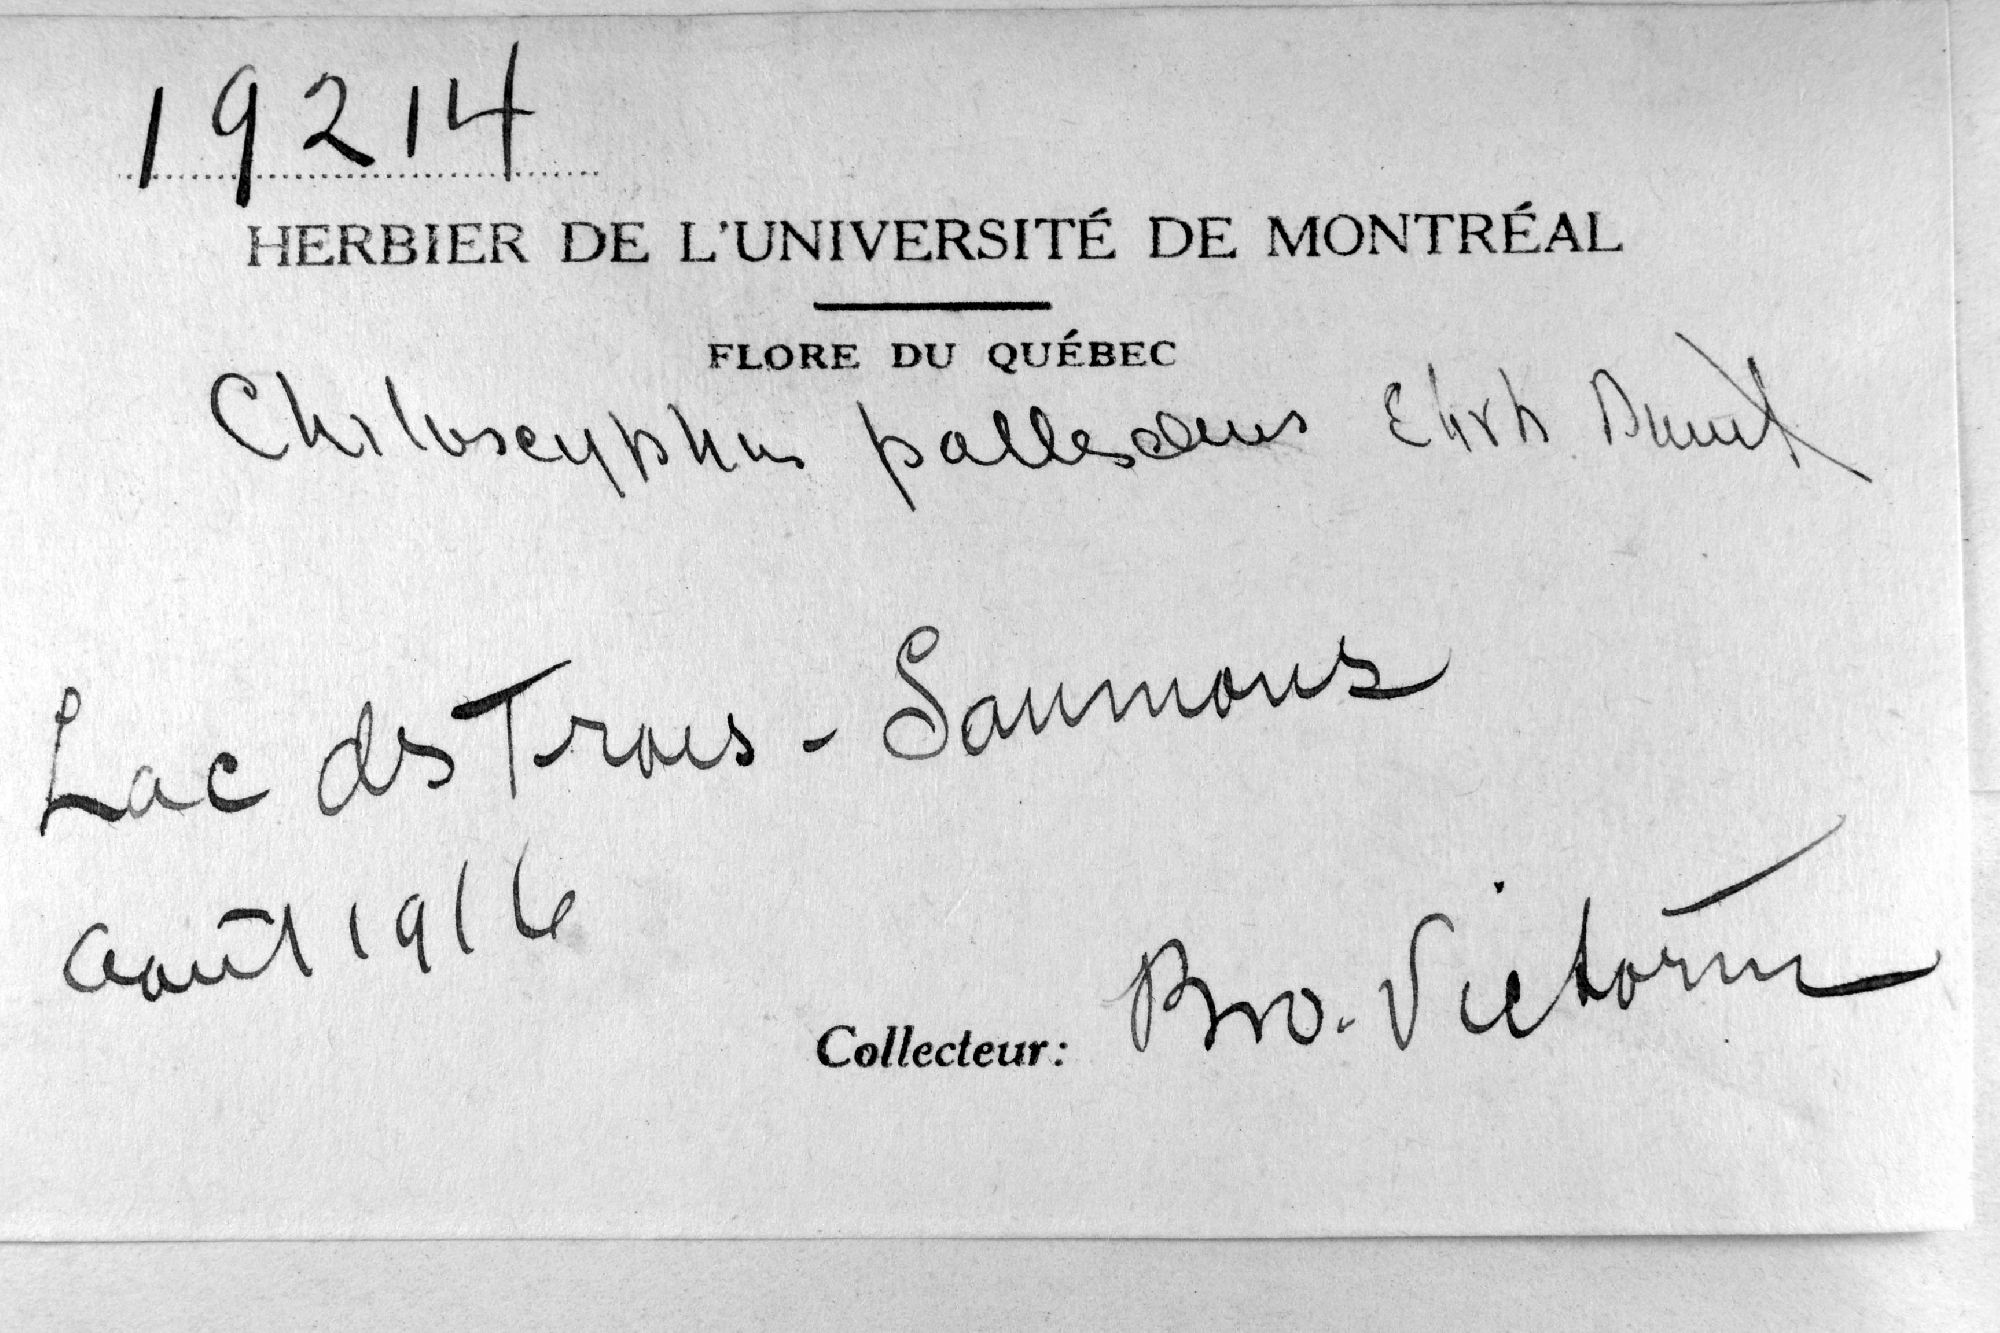 19214
HERBIER DE L'UNIVERSITÉ DE MONTRÉAL
FLORE DU QUÉBEC
Chiloscyphus pallescens Ehrh Dumt
Lac des Trois-Saumons
Août 1916
Collecteur: Bro. Victorin